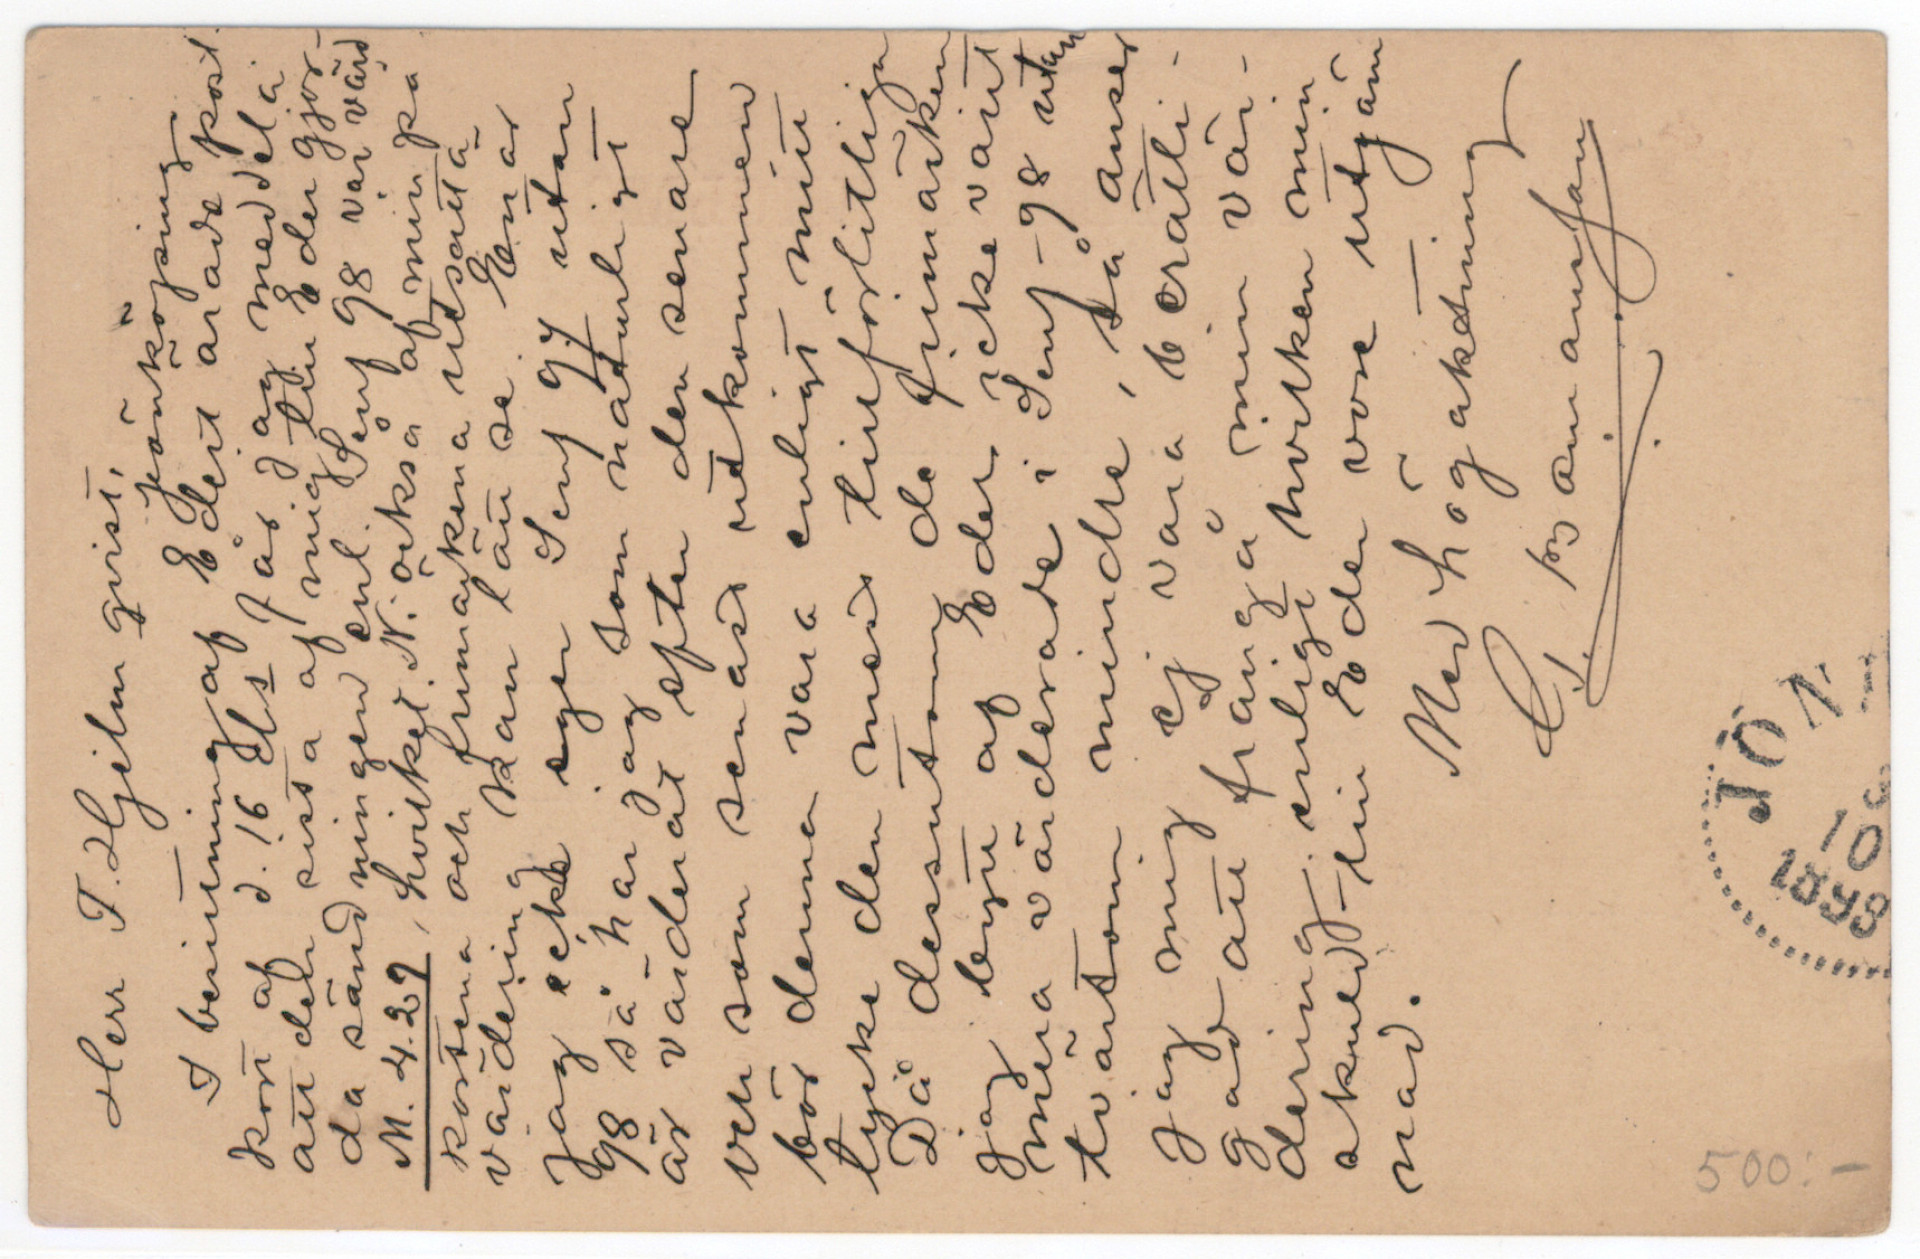 Herr T. Hjelm grist,
Jönköping
I besittning af Edert ärade post
kort af d. 16 ds får jag meddela
att den sista af mig till Eder gjor-
da sändningen enl. Senf 98 var värd
M. 4.29, hvilket N. också af min på
korten och frimärkena utsatta
värdering kan lätt se. Enär
jag icke eger Senf 97 utan
98 så har jag som naturligt
är värderat efter den senare
och som senast utkommen
bör denna vara enligt mitt
tycke den mest tillförlitliga
Då dessutom de frimärken
jag bytt af Eder icke varit
mera värderade i Senf -98 utan
tvärtom mindre, så anser
jag mig ej vara berätti-
gad att frångå min vär-
dering enligt hvilken min
skuld till Eder vore utjäm
nad.
Med högaktning
JÖN
10
1898
500:-